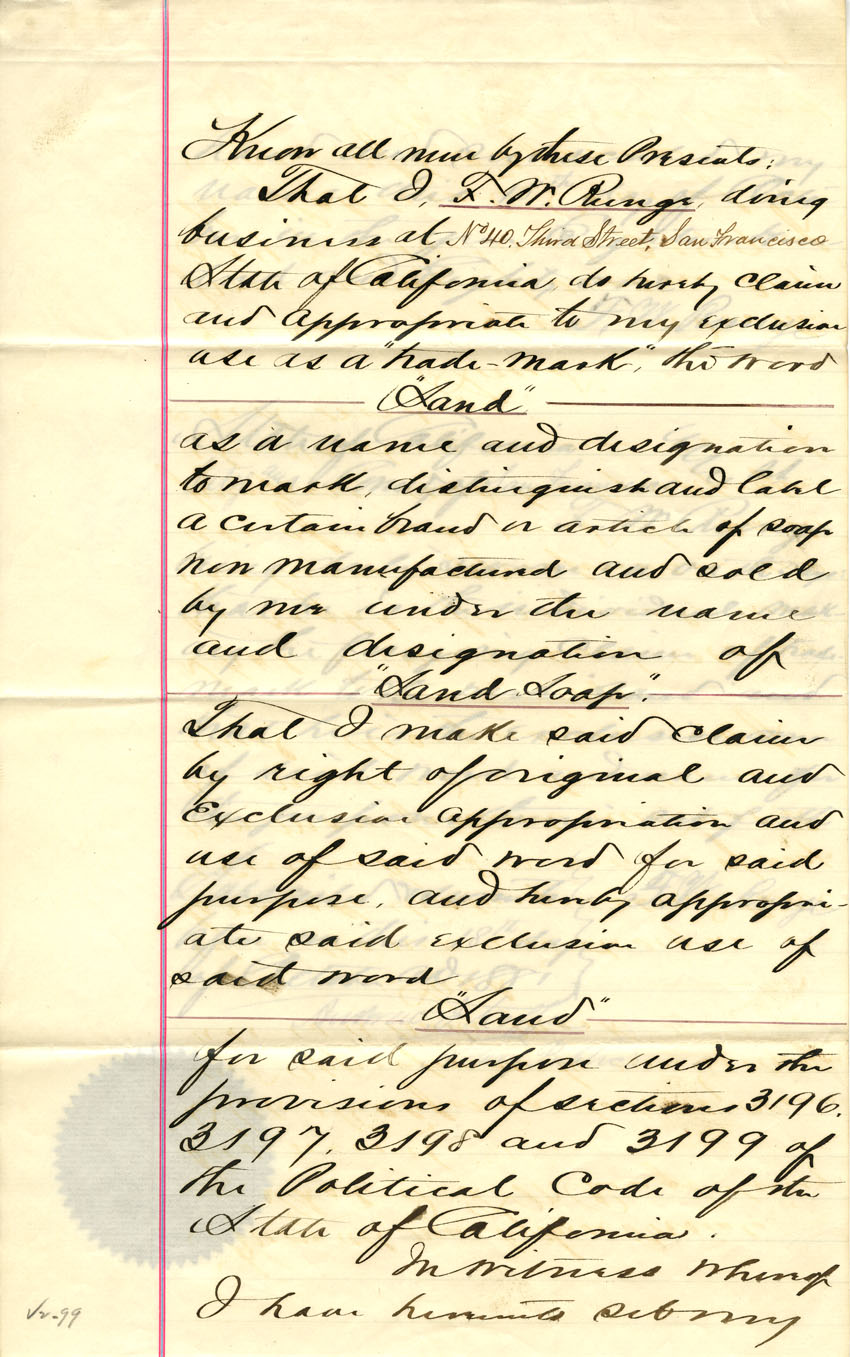 Know all men by these Presents;
That I, F. W. Runge, doing
business at No 40. Third Street, San Francisco
State of California, do hereby claim
and appropriate to my exclusive
use as a "trade-mark", the word
"Sand"
as a name and designation
to mark, distinguish and label
a certain brand or article of soap
now manufactured and sold
by me under the name
and designation of
"Sand Soap".
That I make said claim
by right of original and
exclusive appropriation and
use of said word for said
purpose, and hereby appropri-
ate said exclusive use of
said word
"Sand"
for said purpose under the
provisions of sections 3196.
3197, 3198 and 3199 of
the Political Code of the
State of California.
In Witness Whereof
I have hereunto set my